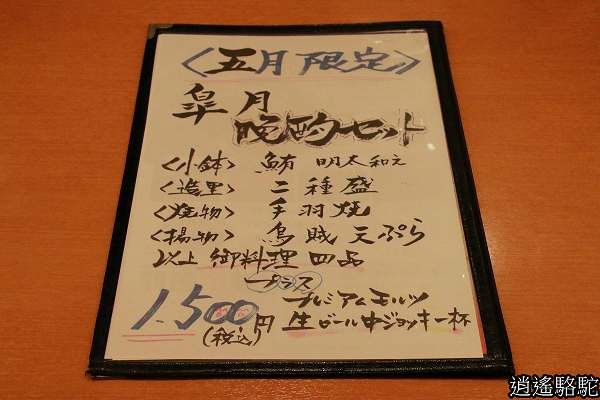 〈五月限定〉
皐月
晩酌セット
〈小鉢〉 鮪 明太和え
〈造里〉 二種盛
〈焼物〉 手羽焼
〈揚物〉 烏賊天ぷら
以上 御料理 四品
プラス
プレミアムモルツ
1,500円 生ビール中ジョッキ一杯
(税込)
逍遙駱駝